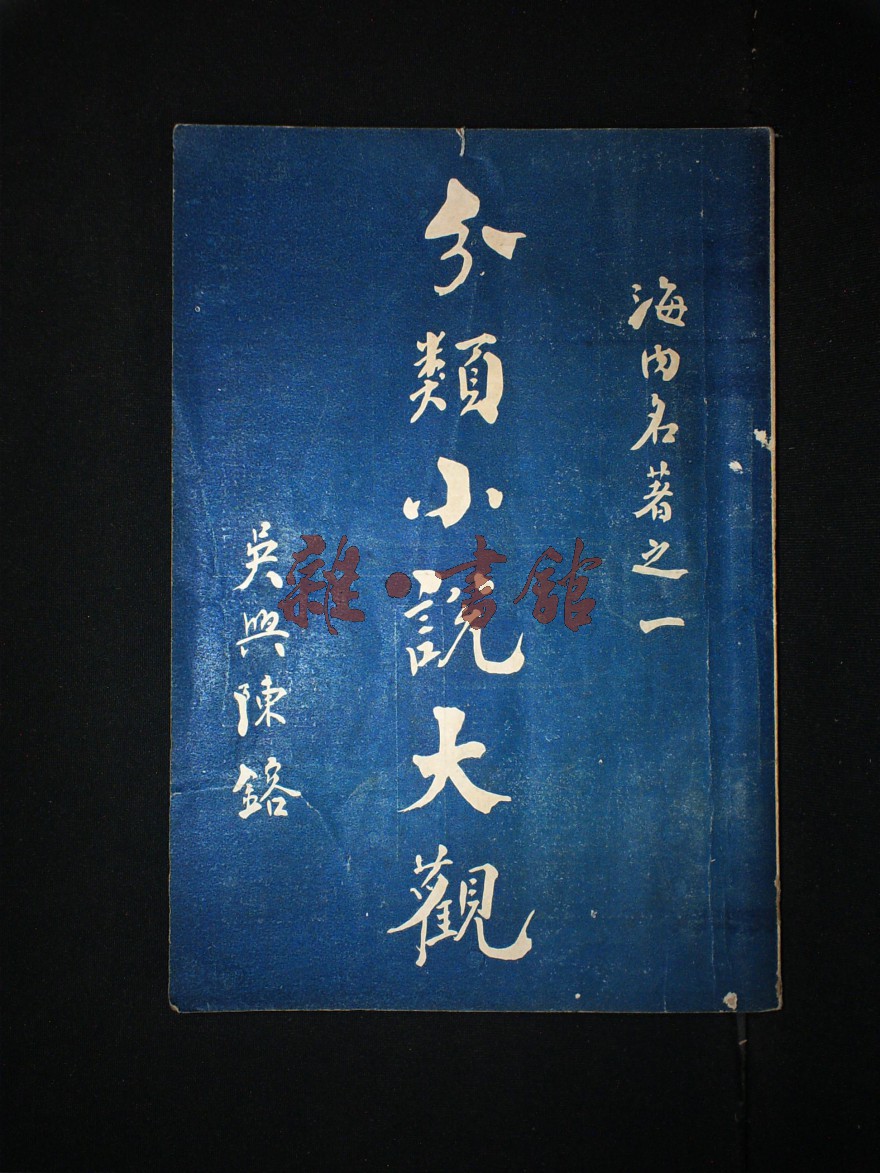 海内名著之一
分類小說大觀
吳興陳鎔
雜·書館